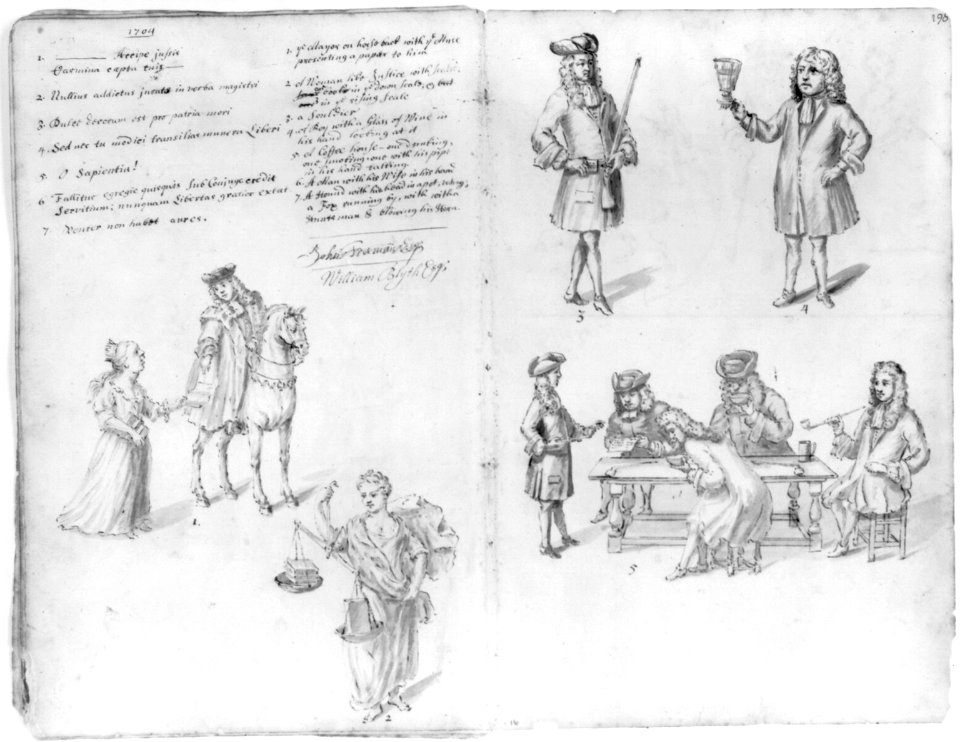 1704
1. Accipe jussi
Carmina capta tuis
2. Nullius addictus jurare in verba magistri
3. Dulce decorum est pro patria mori
4. Sed ne tu modici transiliat munera Liberi
5. O Sapientia!
6 Fallitur egregie quisquis sub Conjuge credit
Servitium; nunquam libertas gratior extat
7. Venter non habet aures.
1. ye Mayor on horse back with ye Muse
presenting a paper to him
2 A Woman like Justice with scales,
books in ye down scale, &
in ye rising scale
3. a Souldier
4. A Boy with a Glass of Wine in
his hand looking at it
5 A Coffee house – one drinking,
one smoking – one with his pipe
in his hand talking
6 – A Man with his Wife in his hand
7. A Hound with his head in a pot,
a Fox running by, with a
Huntsman & blowing his Horn.
John Seaman Esqr
William Blyth Esqr
196
1.
2
3
4
5